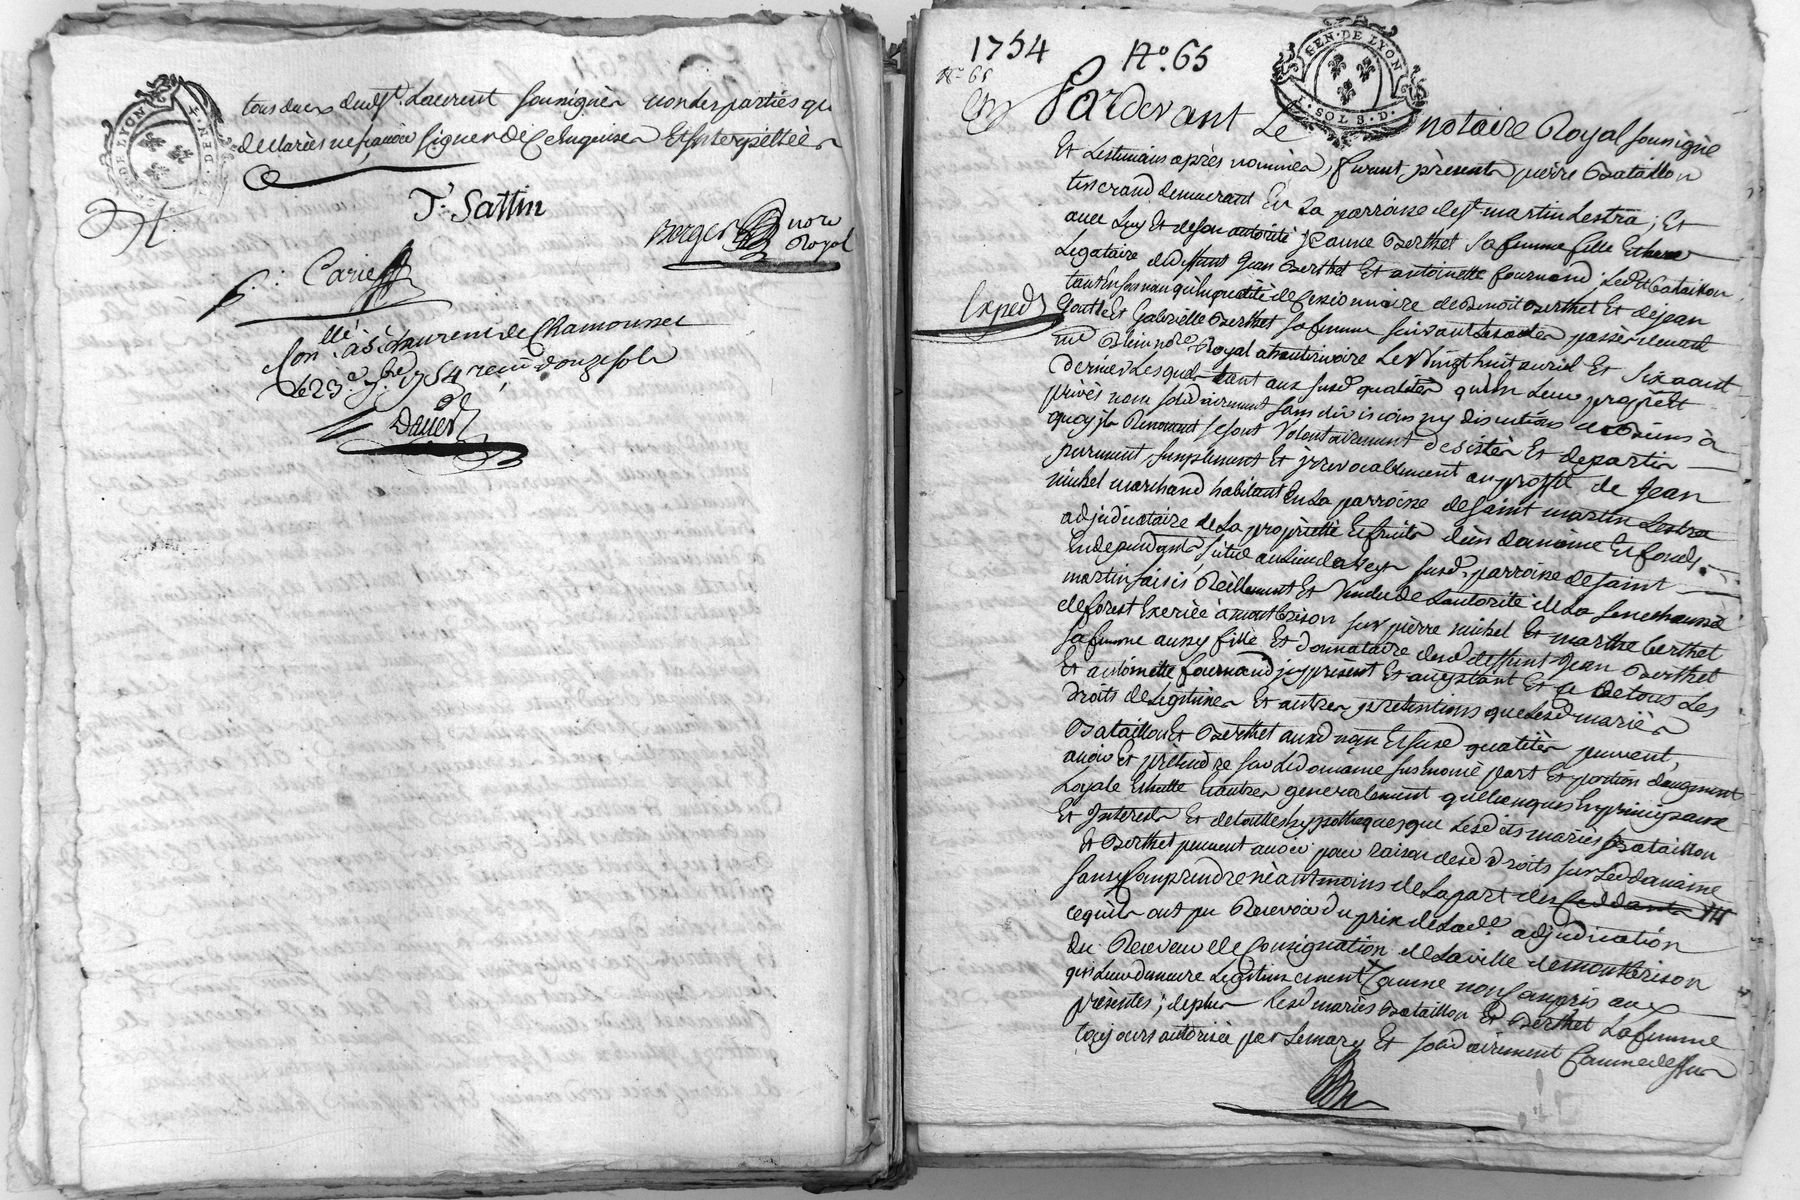 GEN. DE LYON
tous deux dud. st. Laurent sousignés non les parties qui
declarées ne scavoir signer de ce enquises Et interpellées
J. Sattin
Berger no.re
Royal
Carie
Con.llé à St Laurent de Chamousset
Le 23e 7bre 1754 reçu douze sols
1754 No. 65
No 65
GEN. DE LYON
1. SOL 8. D.
Pardevant Le notaire Royal sousigné
Et Les temoins après nommés, furent présents pierre Bataillon
tisserand demeurant En La parroise de st. martin Lestra; Et
avec Luy Et de son autorité jeanne Berthet sa femme fille Et
Legataire de deffunt jean Berthet Et antoinette fournand; Led Bataillon
Exped
tant En son nom qu'en qualité de Cessionnaire de Benoit Berthet Et de jean
Et Gabrielle Berthet sa femme suivant Les actes passés devant
me no.re Royal Le Vingt huit avril Et six aout
dernier Lesquels tant aux susd qualités qu'en Leur propre Et
privés nom solidairement sans division ny discution de Biens à
quoy ils Renoncent se sont Volontairement desistés Et departis
purement simplement Et jrrevocablement au proffit de jean
michel marchand habitant En La parroise de saint martin Lestra
adjudicataire de La proprietté Et fruits d'un domaine Et fonds
En dependants, situé au Lieu de susd. parroise de saint
martin saisis Réellement Et Vendu de L'autorité de La senechaussé
de forest Exercée à montbrison sur pierre michel Et marthe berthet
sa femme aussy fille Et donnataire dud deffunt jean Berthet
Et antoinette fournand jcy présent Et acceptant Et ce de tous Les
droits de Legitimes Et autres pretentions que Lesd mariés
Bataillon Et Berthet aux d nom Et susd qualités peuvent,
avoir Et prétendre sur Led domaine sus Enoncé part Et portion d'augment
Loyale Echutte Et autres generalement quelconques En principaux
Et jnterests Et de touttes hypotheques que Lesdits mariés Bataillon
Et Berthet peuvent avoir pour raison desd droits sur Led domaine
sans y Comprendre néantmoins de La part des
ce qu'ils ont pu Recevoir du prix de Lad.e adjudication
du Receveur de Consignation de La ville de montbrison
qui Leur demeure Legitimement Comme non Compris aux
présentes; de plus Lesd mariés Bataillon Et Berthet La femme
toujours autorisée par Le mary Et solidairement Comme dessus